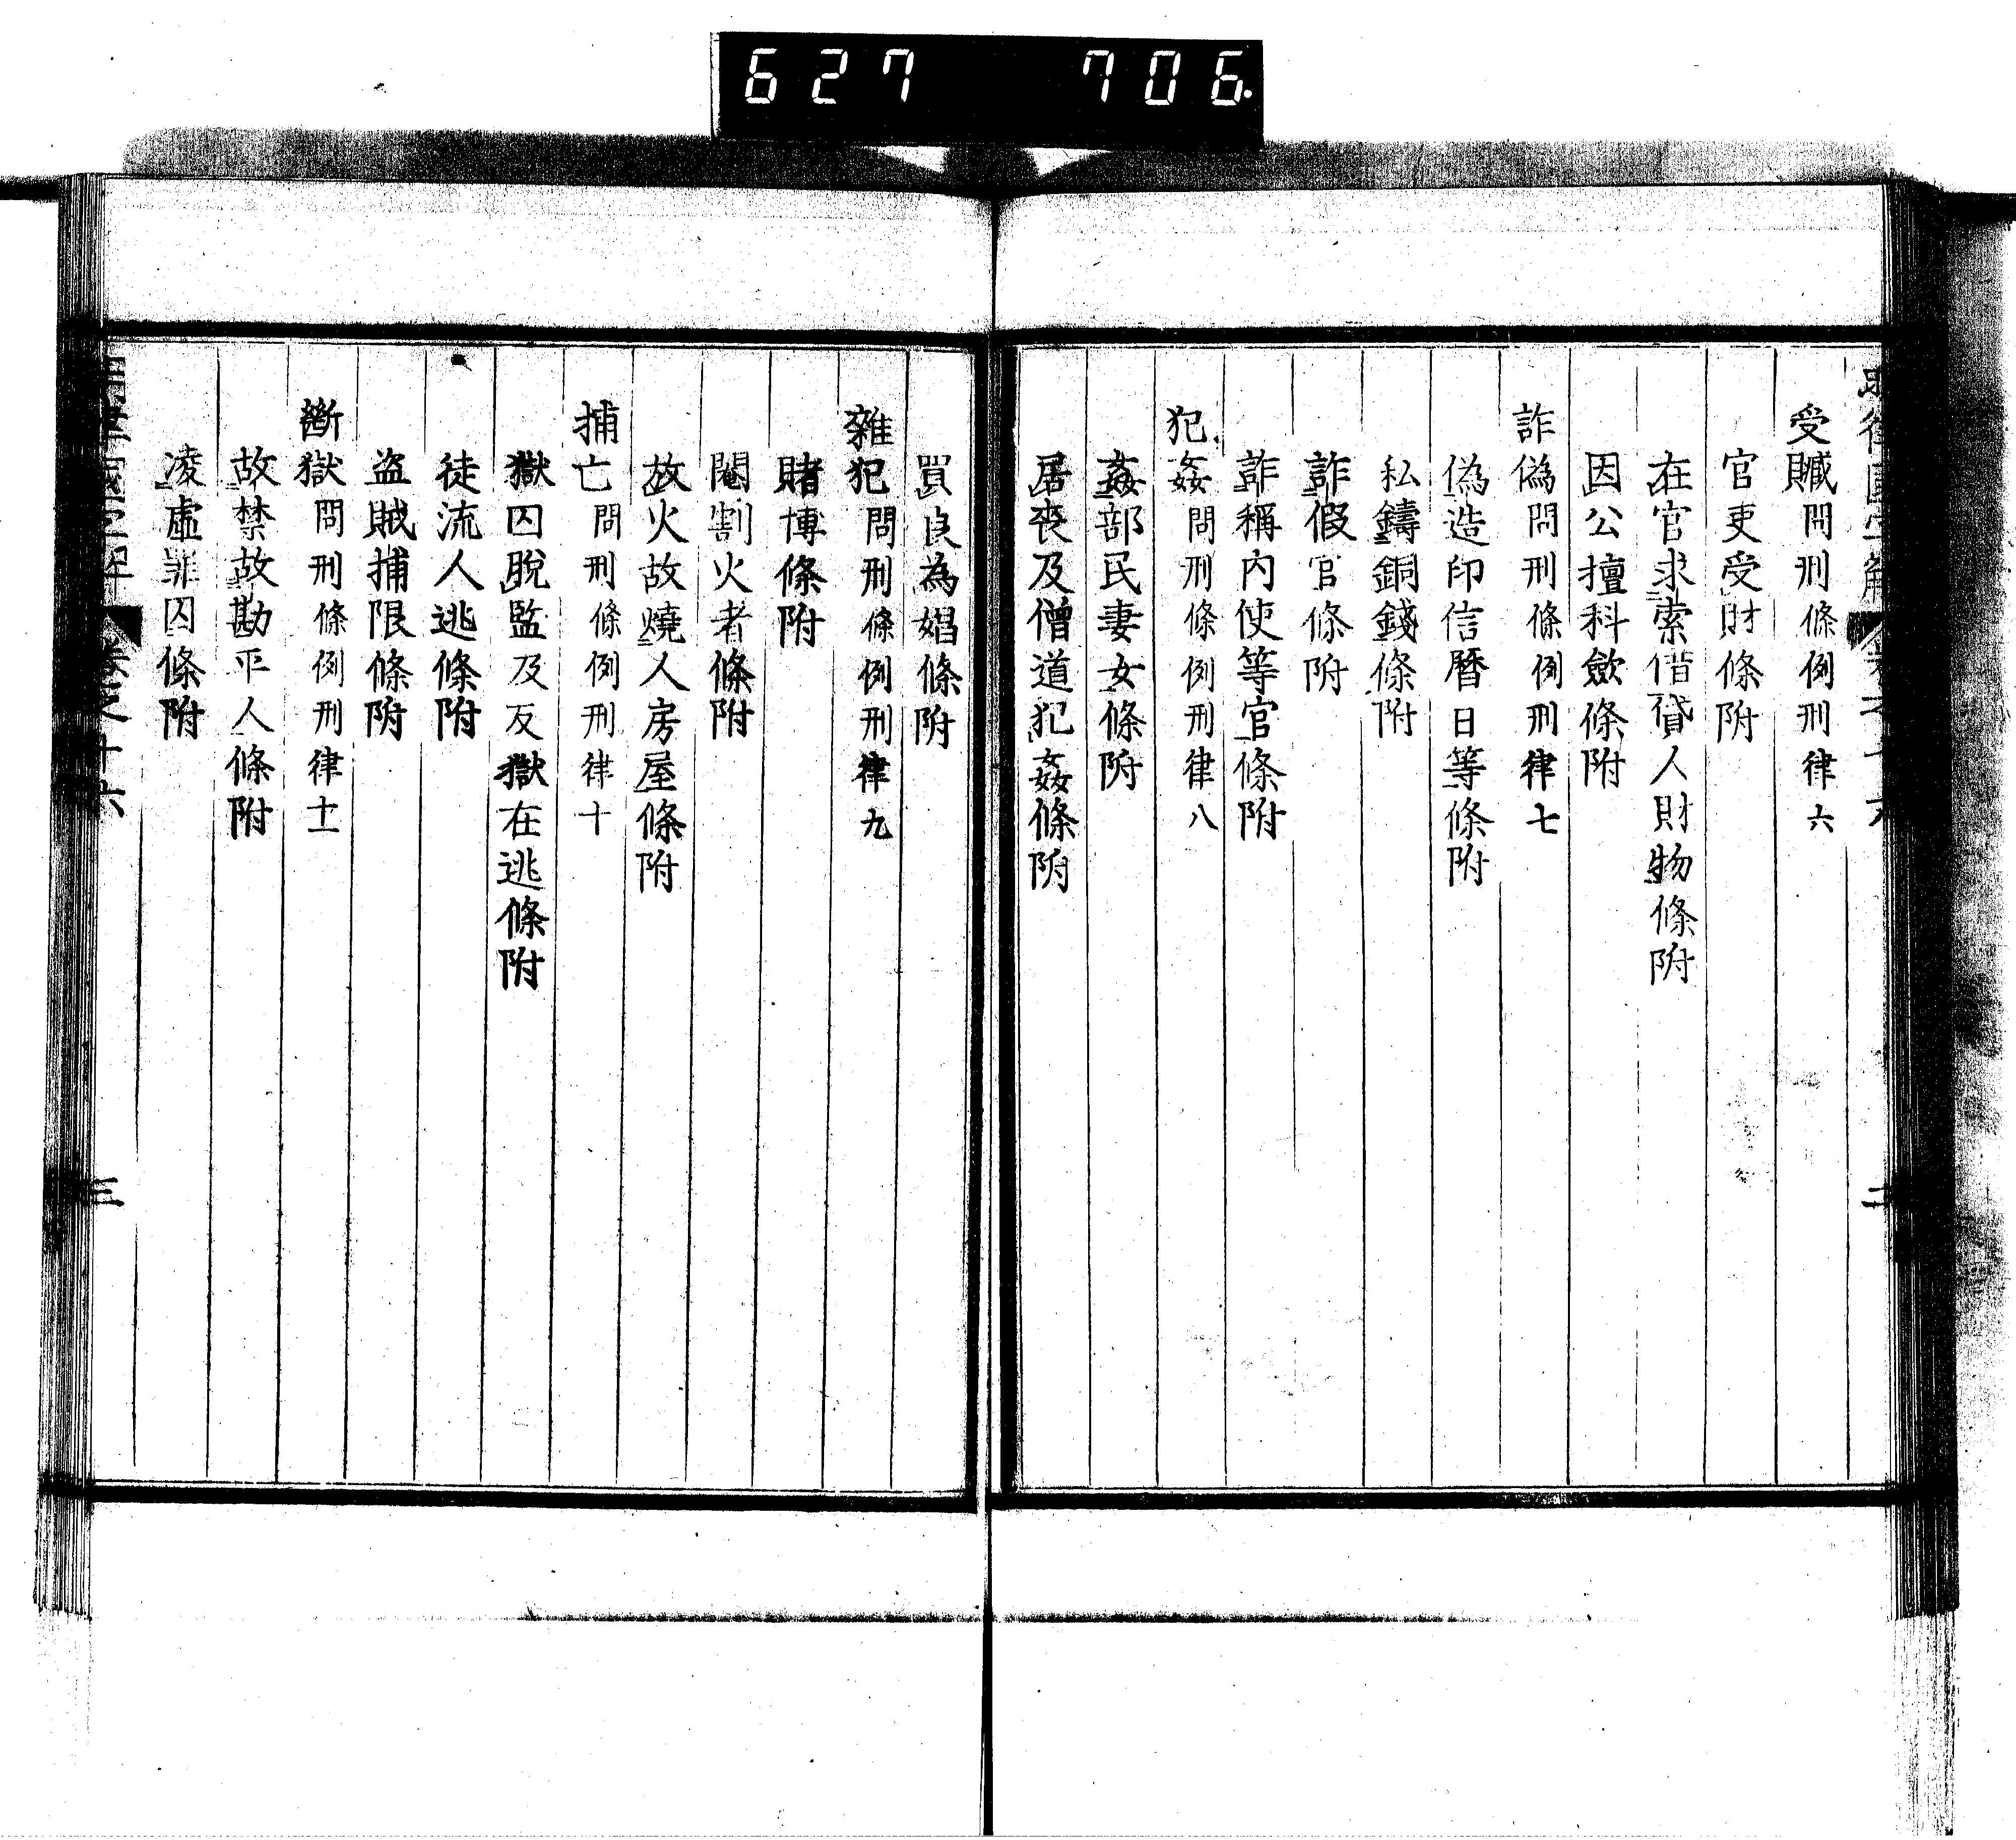 627 706.
受贓問刑條例刑律六
官吏受財條附
在官求索借貸人財物條附
因公擅科斂條附
詐偽問刑條例刑律七
偽造印信曆日等條附
私鑄銅錢條附
詐假官條附
詐稱內使等官條附
犯姦問刑條例刑律八
姦部民妻女條附
居喪及僧道犯姦條附
買良為娼條附
雜犯問刑條例刑律九
賭博條附
閹割火者條附
故火故燒人房屋條附
捕亡問刑條例刑律十
獄囚脫監及反獄在逃條附
徒流人逃條附
盜賊捕限條附
斷獄問刑條例刑律十一
故禁故勘平人條附
凌虛罪囚條附
卷之十六
三